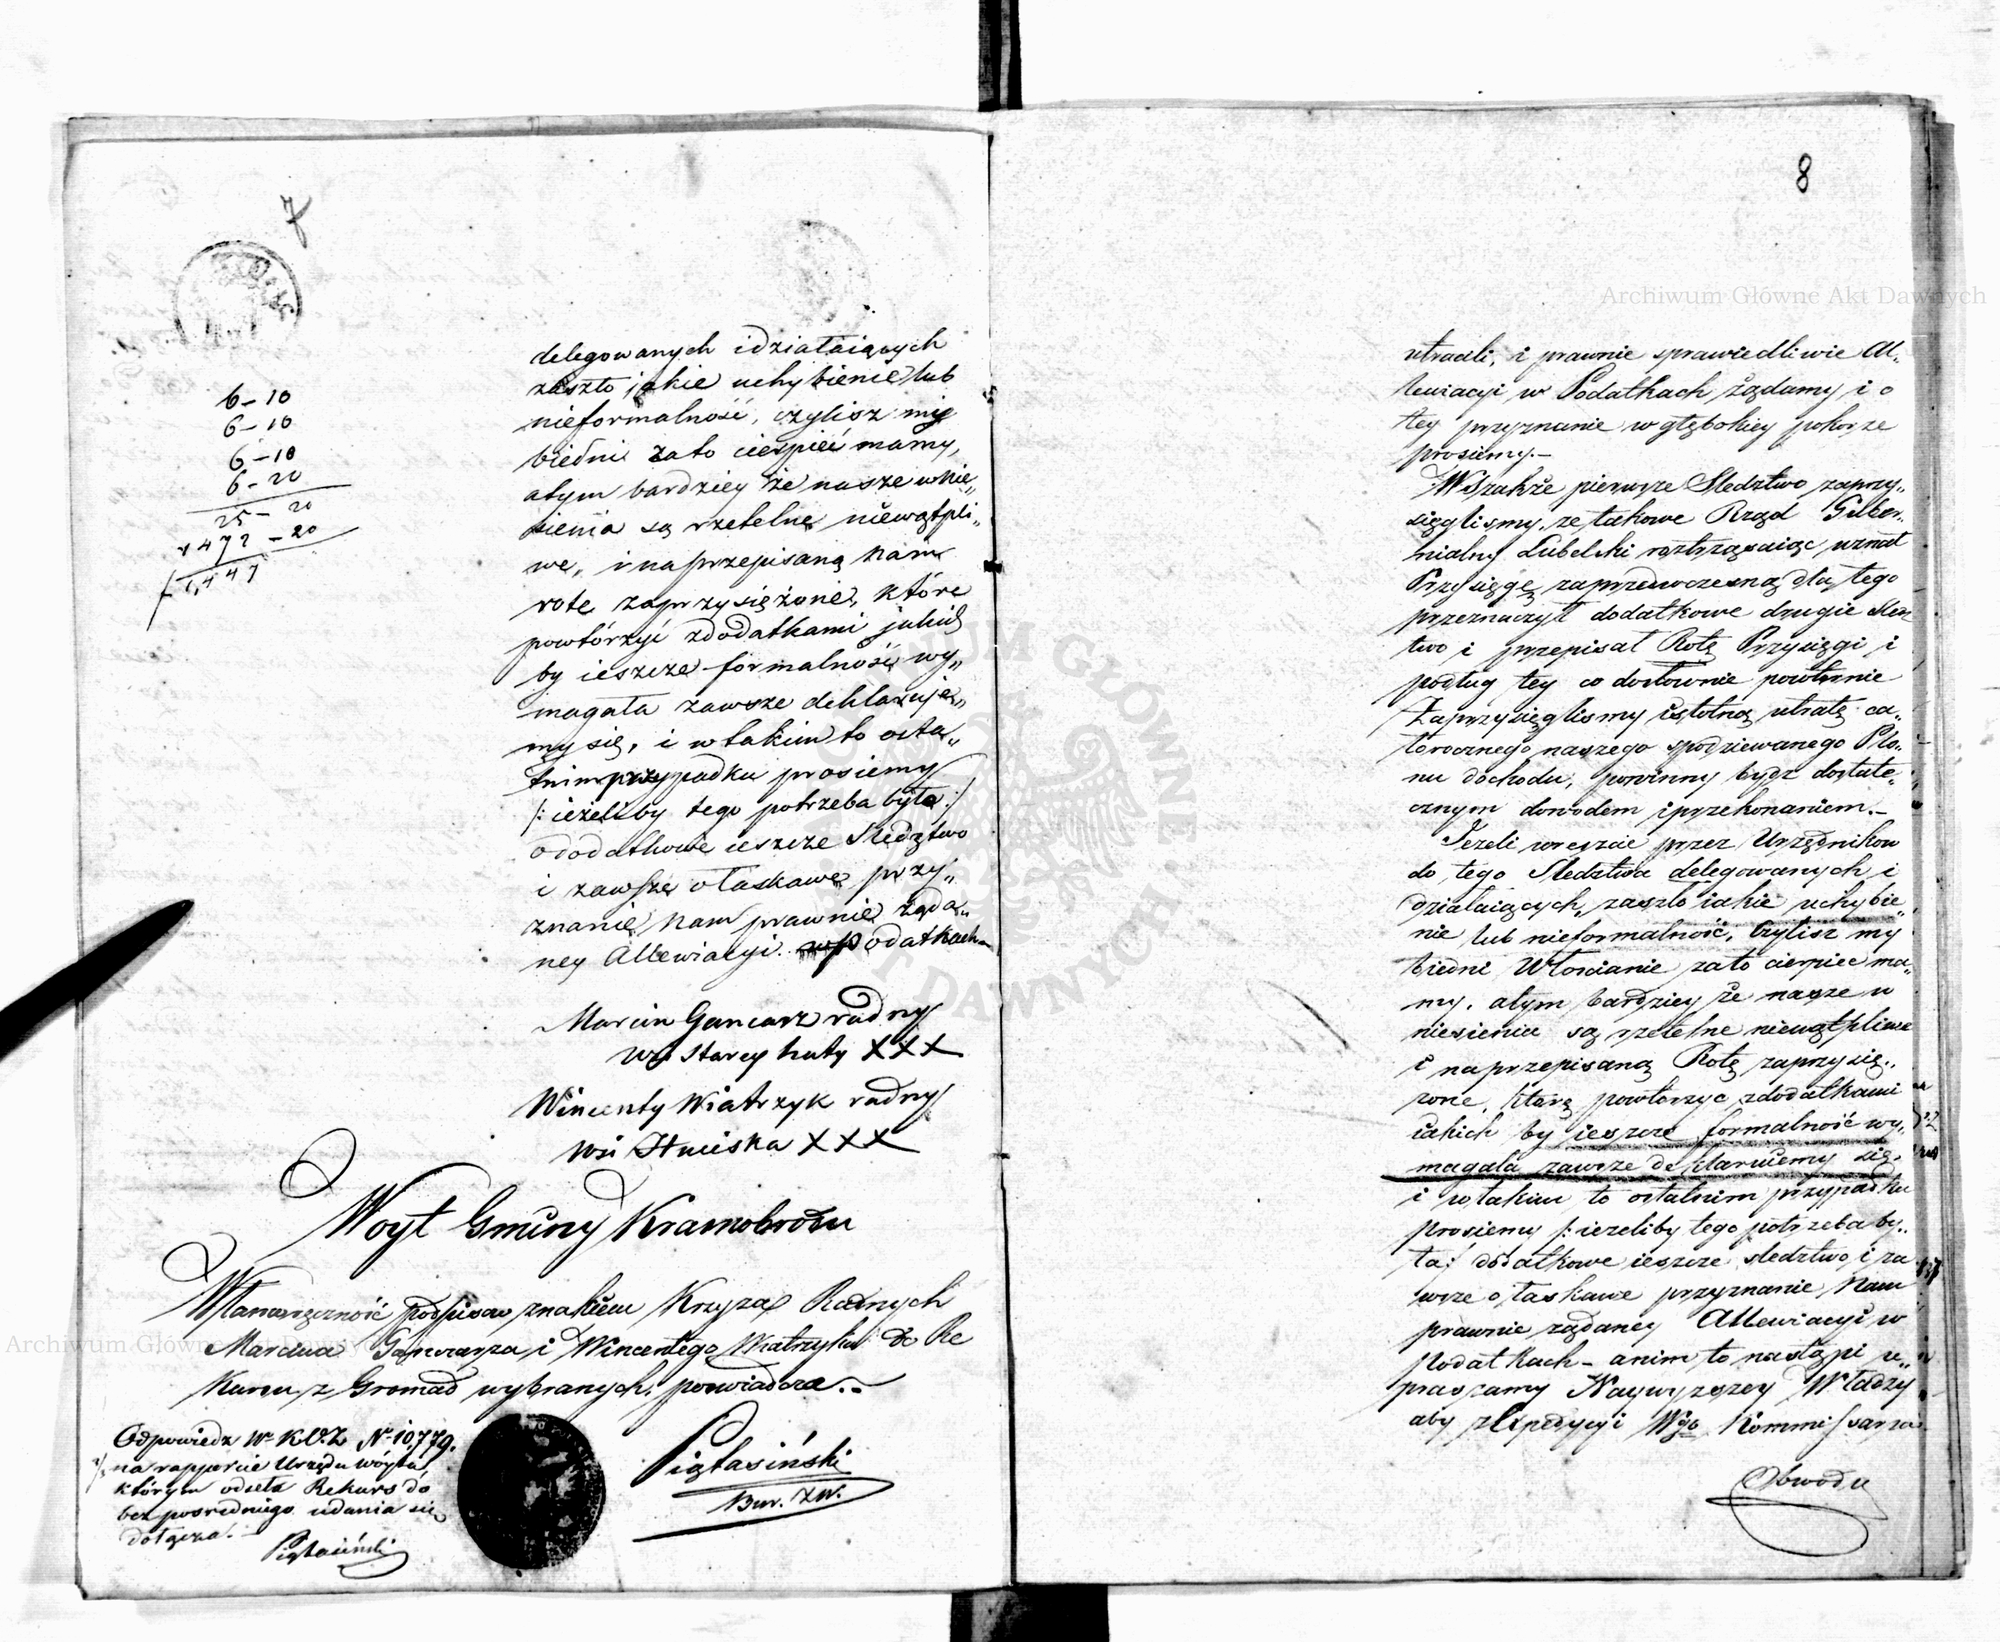 7
6-10
6-10
6-10
6-20
25-20
1472-20
1,447
delegowanych i działaiących
zaszło jakie uchybienie lub
nieformalność, czylisz my
biedni za to cierpieć mamy,
atym bardziey że nasze wnie„
sienia są rzetelne niewątpli„
we, i na przepisaną nam
rotę zaprzysiężone, które
powtórzyć z dodatkami jakich
by ieszcze formalność wy„
magała zawsze deklaruje„
my się, i w takim to osta„
tnim przypadku prosiemy
/: ieżeliby tego potrzeba była :/
o dodatkowe ieszcze Sledztwo
i zawsze o łaskawe przy„
znanie nam prawnie żąda„
ney Allewiacyi w podatkach
Marcin Gancarz radny
wsi Starey huty XXX
Wincenty Wiatrzyk radny
wsi Huciska XXX
Woyt Gminy Krasnobrodu
Własnoręczność podpisow znakiem Krzyża Radnych
Marcina Gancarza i Wincentego Wiatrzyka do Re
kursu z Gromad wybranych, poswiadcza.
Odpowiedz W. K.O.Z. Nr 10,779.
na rapporcie Urzędu Wóyta
którym odseła Rekurs do
bezposredniego udania się
dołącza.
Piątasiński
Piątasiński
Bur. Zw.
8
utracili, i prawnie sprawiedliwie Al„
lewiacyi w Podatkach żądamy i o
tey przyznanie w głębokiey pokorze
prosiemy.–
Wszakże pierwsze Sledztwo zaprzy„
sięglismy, ze takowe Rząd Guber„
nialny Lubelski roztrząsaiąc, uznał
Przysięgę zaprzedwczesną dla tego
przeznaczył dodatkowe drugie Sledz
two i przepisał Rotę Przysięgi i
podług tey co dosłownie powtornie
Zaprzysięglismy istotną utratę ca„
łorocznego naszego spodziewanego Plo„
nu dochodu, powinny bydz dostate„
cznym dowodem i przekonaniem.–
Jeżeli wreszcie przez Urzędnikow
do tego Sledztwa delegowanych i
działaiących, zaszło iakie uchybie„
nie lub nieformalność, Czylisz my
biedni Włoscianie zato cierpiec ma„
my, atym bardziey że nasze u
niesienia są rzetelne niewątpliwe
i na przepisaną Rotę zaprzysię„
zone, którą powtorzyc z dodatkami
iakich by ieszcze formalność wy„
magała zawsze deklaruiemy się,
i w takim to ostatnim przypadku
prosiemy /: ieżeliby tego potrzeba by„
ła :/ dodatkowe ieszcze sledztwo, i za
wsze o łaskawe przyznanie Nam
prawnie żądaney Allewiacyi w
Podatkach – a nim to nastąpi u„
praszamy Naywyzszey Władzy
aby z Expedycyi Wgo Kommissarza
Obwodu
Archiwum Główne Akt Dawnych
Archiwum Główne Akt Dawnych